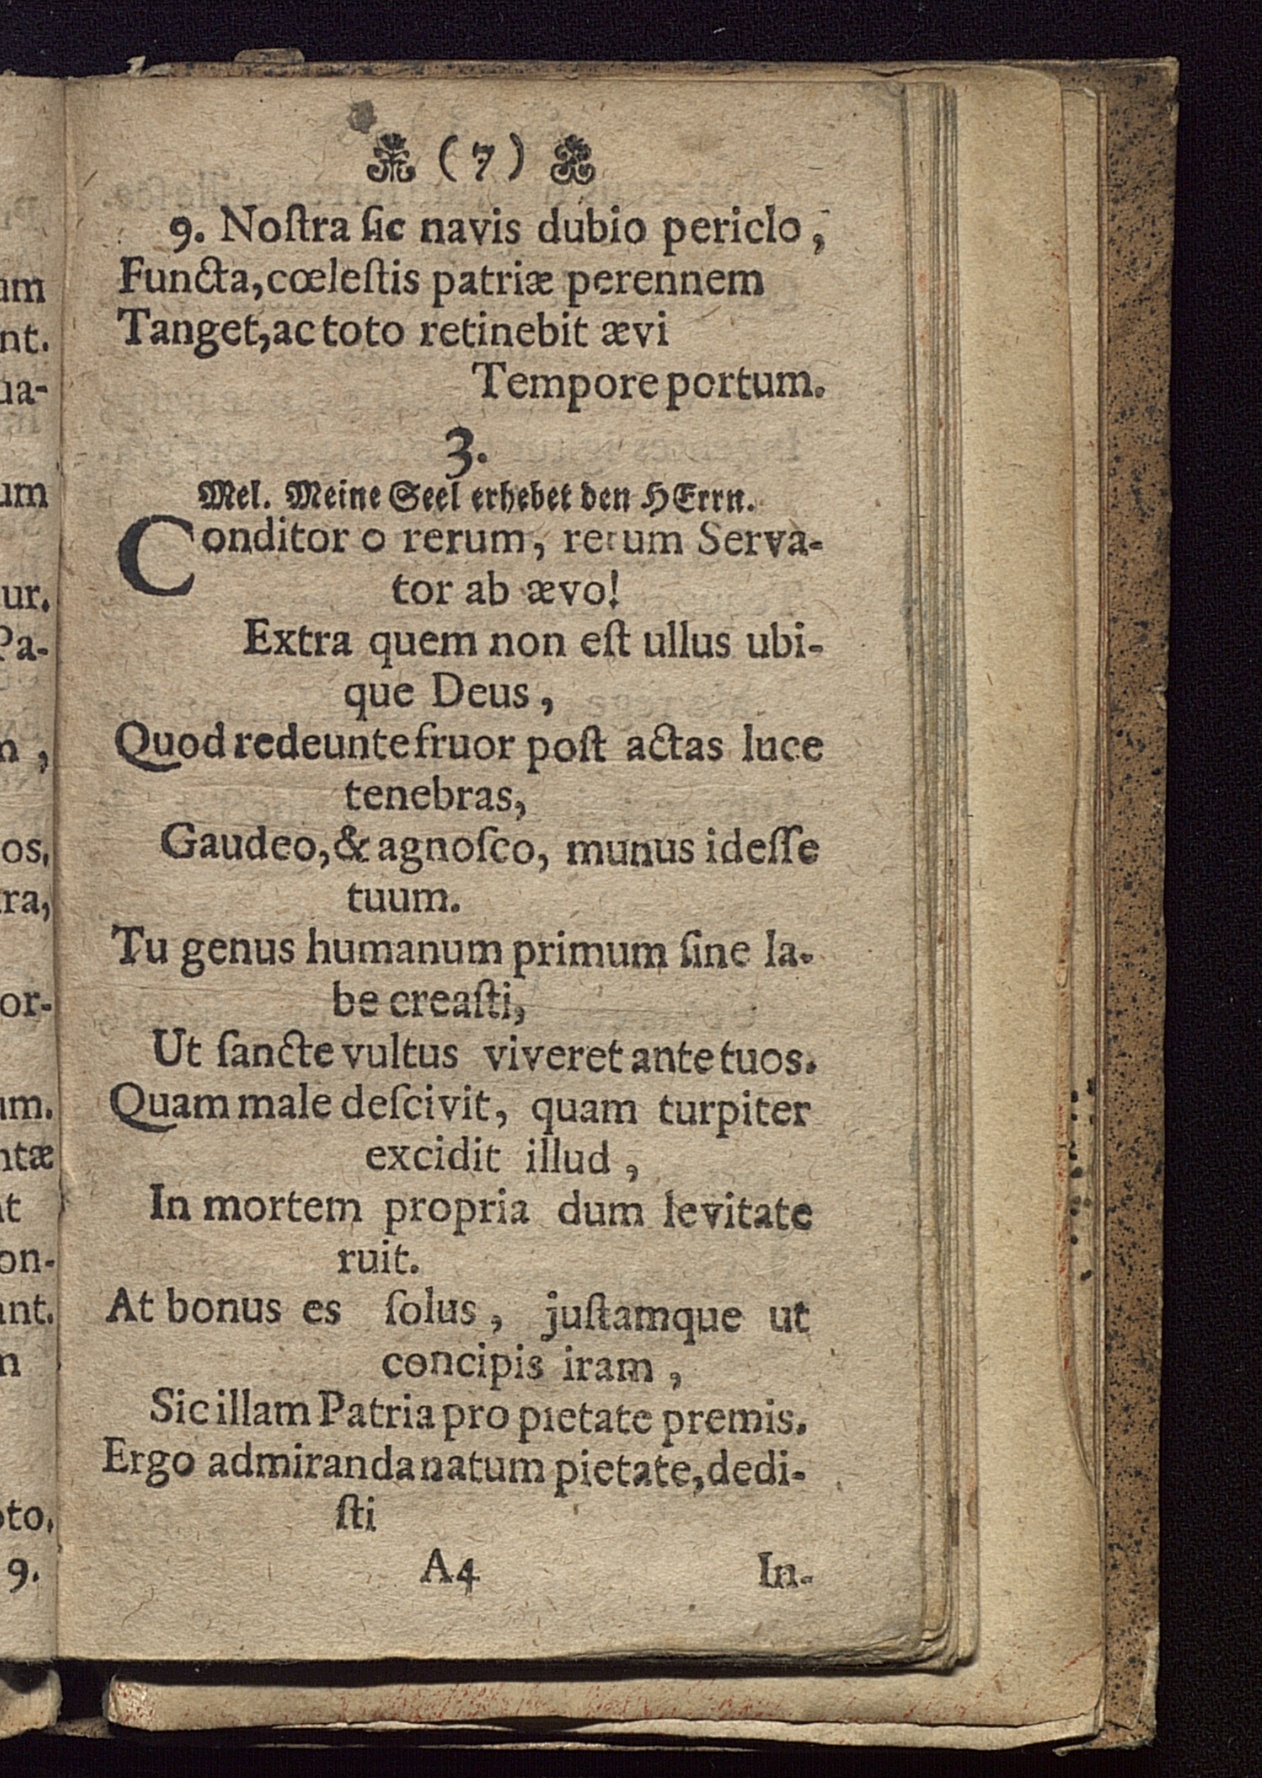 (7)
9. Noſtra ſic navis dubio periclo,
Functa, cœleſtis patriæ perennem
Tanget, ac toto retinebit ævi
Tempore portum.
3.
Mel. Meine Seel erhebet den HErrn.
Conditor o rerum, rerum Serva-
tor ab ævo!
Extra quem non eſt ullus ubi-
que Deus,
Quod redeunte fruor poſt actas luce
tenebras,
Gaudeo, & agnoſco, munus id eſſe
tuum.
Tu genus humanum primum ſine la-
be creaſti,
Ut ſancte vultus viveret ante tuos.
Quam male deſcivit, quam turpiter
excidit illud,
In mortem propria dum levitate
ruit.
At bonus es ſolus, juſtamque ut
concipis iram,
Sic illam Patria pro pietate premis.
Ergo admiranda natum pietate, dedi-
ſti
A4 In-